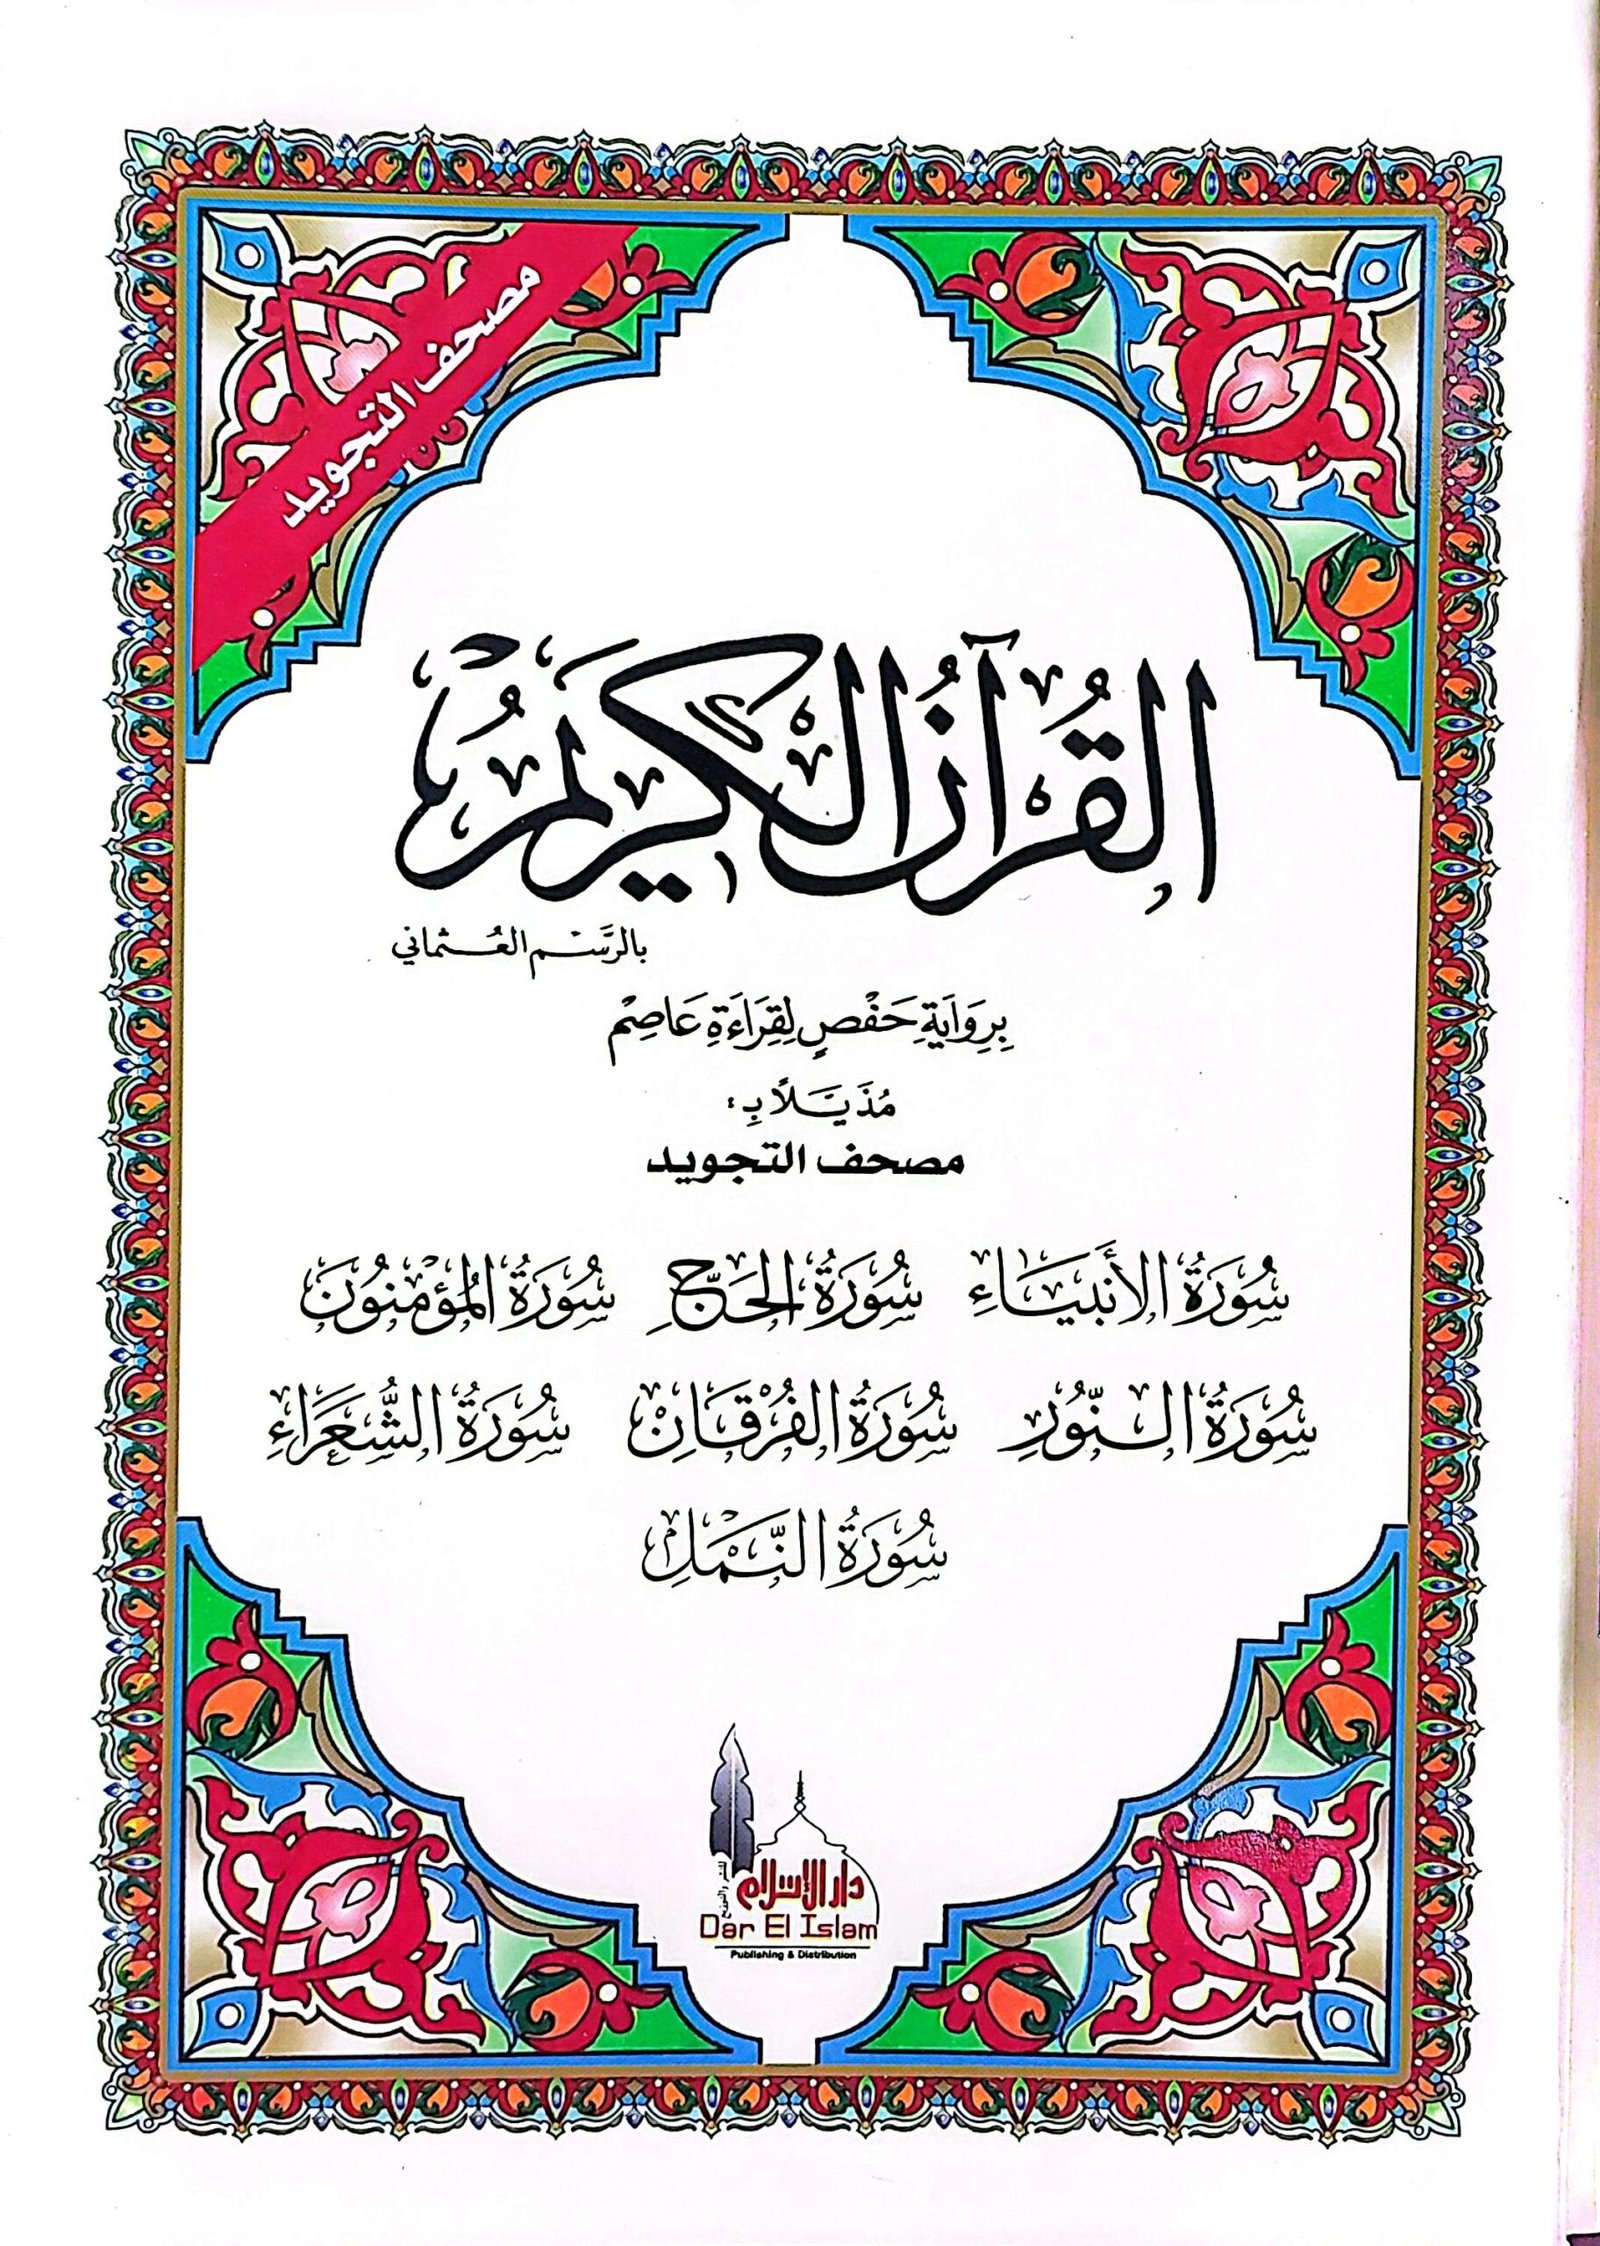 مصحف التجويد
القُرْآنُ الْكَرِيمُ
بالرَّسْم العُثماني
بِرِوَايَةِ حَفْصٍ لِقِرَاءَةِ عَاصِمْ
مُذَيَّلاً بِ:
مصحف التجويد
سُورَةُ الأَنْبِيَاءِ سُورَةُ الحَجِّ سُورَةُ المُؤْمِنُونَ
سُورَةُ النُّورِ سُورَةُ الفُرْقَانِ سُورَةُ الشُّعَرَاءِ
سُورَةُ النَّمْلِ
دار الإسلام
للنشر والتوزيع
Dar El Islam
Publishing & Distribution